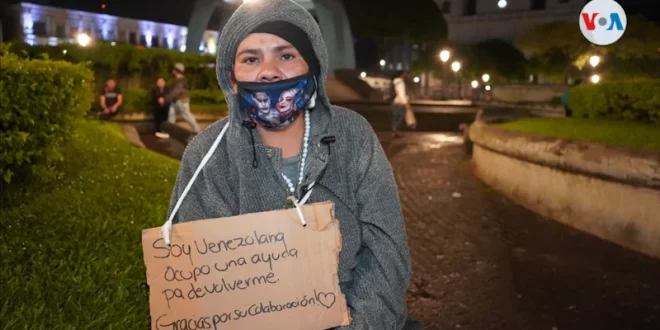 VOA
Soy Venezolana
Ocupo una ayuda
pa devolverme.
Gracias por su Colaboración!